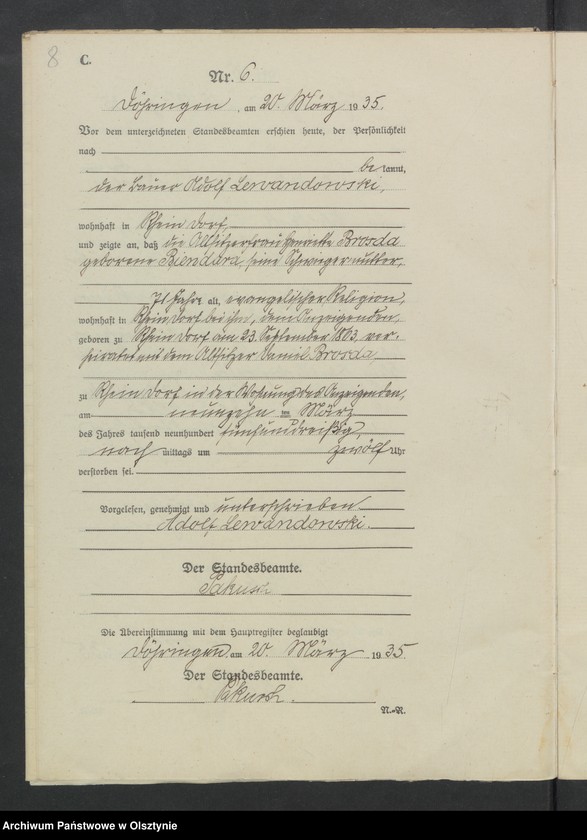 8
C.
Nr. 6.
Döhringen, am 20. März 1935.
Vor dem unterzeichneten Standesbeamten erschien heute, der Persönlichkeit
nach
be kannt,
der Bauer Adolf Lewandowski,
wohnhaft in Rhein Dorf,
und zeigte an, daß die Altsitzerfrau Henriette Brosda
geborene Biendara, seine Schwiegermutter,
71 Jahre alt, evangelischer Religion,
wohnhaft in Rhein Dorf bei ihm, dem Anzeigenden,
geboren zu Rhein Dorf am 23. September 1863, ver-
heiratet mit dem Altsitzer Brosda,
zu Rhein Dorf in der Wohnung des Anzeigenden,
am neunzehn ten März
des Jahres tausend neunhundert fünfunddreißig,
nach mittags um zwölf Uhr
verstorben sei.
Vorgelesen, genehmigt und unterschrieben
Adolf Lewandowski.
Der Standesbeamte.
Die Übereinstimmung mit dem Hauptregister beglaubigt
Döhringen, am 20. März 1935
Der Standesbeamte.
N.-R.
Archiwum Państwowe w Olsztynie